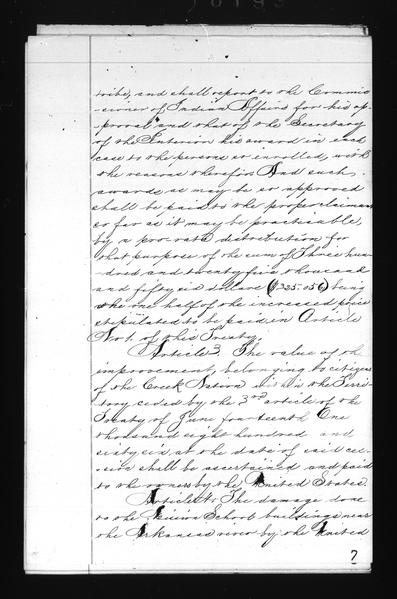 tribe, and shall report to the Commis
-sioner of Indian Affairs for his ap-
-proval and that of the Secretary
of the Interior his award in each
case to the persons so enrolled, with
the reasons therefor. And such
awards as may be so approved
shall be paid to the proper claimants
so far as it may be practicable,
by a pro-rata distribution for
that purpose of the sum of Three hun-
dred and twenty five thousand
and fifty six dollars ($325.056) being
the one half of the increased price
stipulated to be paid in Article
No 1. of this Treaty.
Article 3. The value of the
improvement, belonging to citizens
of the Creek Nation within the Terri-
tory ceded by the 3rd article of the
Treaty of June fourteenth One
thousand eight hundred and
sixty six, at the date of said ces-
-sion shall be ascertained and paid
to the owners by the United States.
Article 4. The damage done
to the School buildings near
the Arkansas river by the United
7